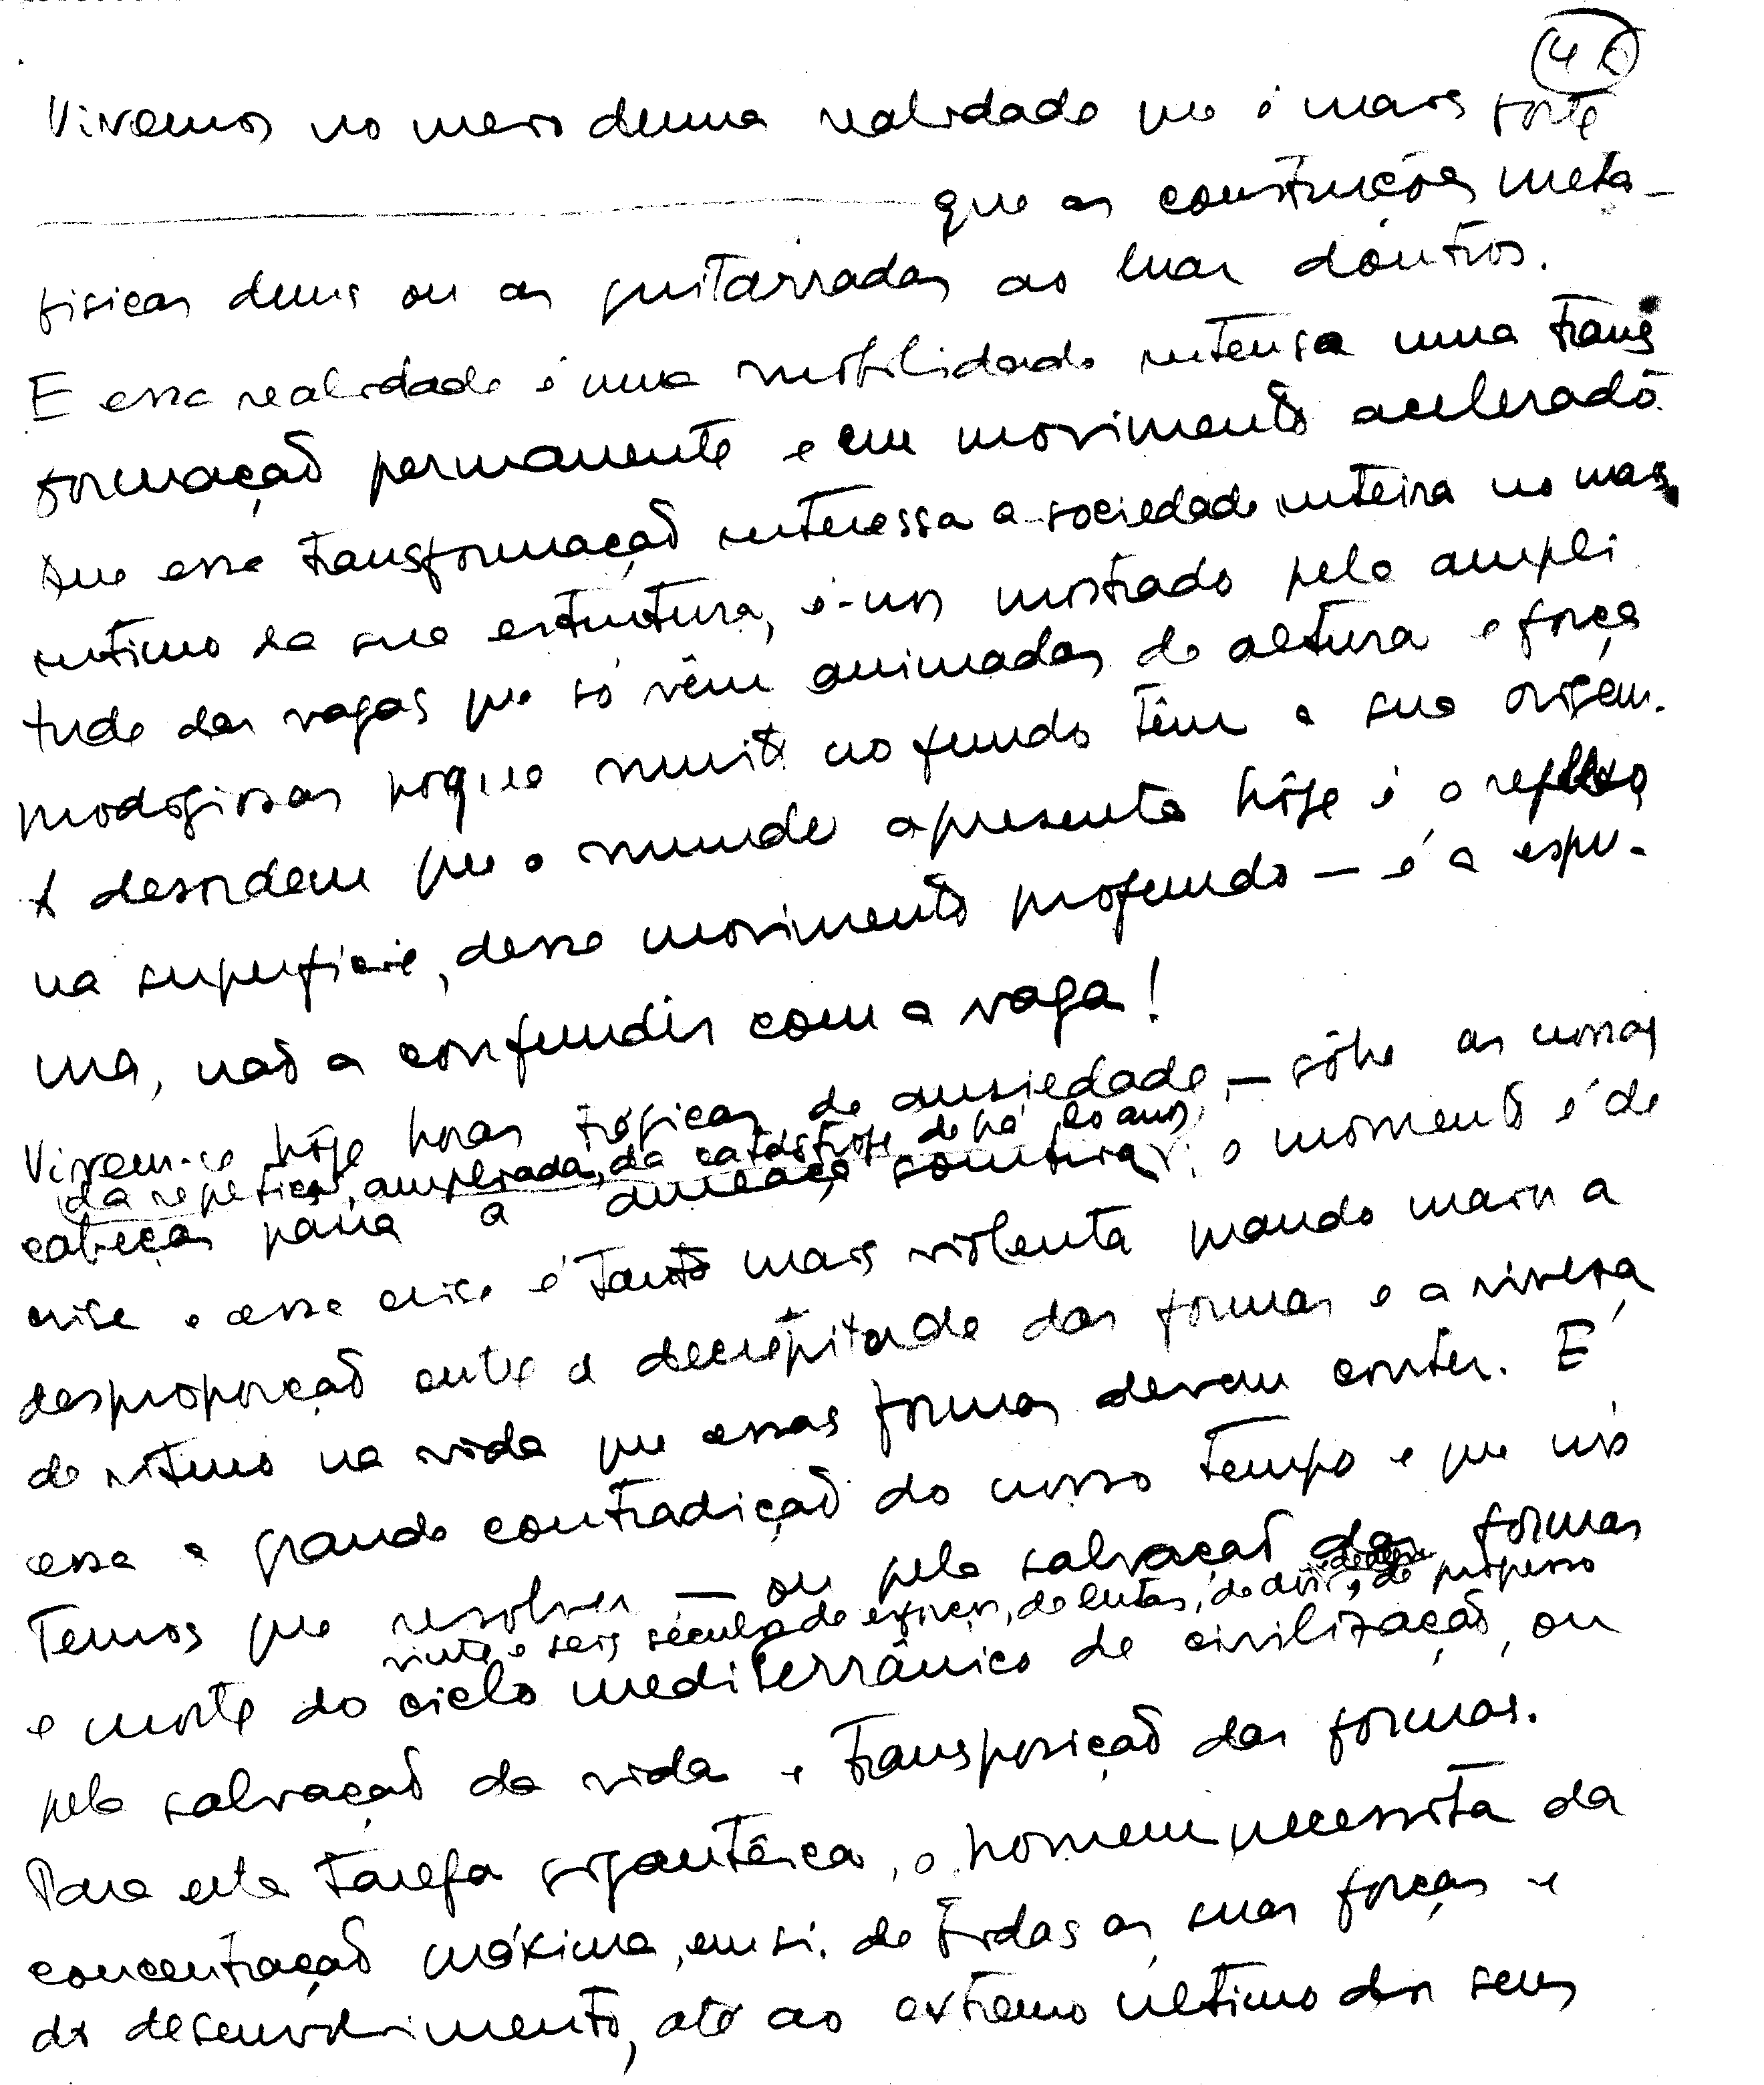 46
Vivemos no meio duma realidade que é mais forte
que as construções meta-
físicas duns ou as guitarradas ao luar doutros.
E essa realidade é uma mobilidade intensa uma trans
formação permanente e em movimento acelerado.
Que essa transformação interessa a sociedade inteira no mais
intimo da sua estrutura, é-nos mostrado pela ampli
tude das vagas que só vêm animadas de altura e força
prodogiosas porque muito no fundo têm a sua origem.
A desordem que o mundo apresenta hôje é o reflexo,
na superficie, desse movimento profundo — é a espu-
ma, não a confundir com a vaga!
Vivem-se hôje horas trágicas de ansiedade, — sôbre as nossas
da repetição, ampliada, da catástrofe de há 20 anos,
cabeças paira a ameaça sombria; o momento é de
crise e essa crise é tanto mais violenta quando maior a
desproporção entre a decrépitude das formas e a riqueza
de ritmo na vida que essas formas devem conter. É
essa a grande contradição do nosso tempo e que nós
temos que resolver — ou pela salvação das formas
vinte e seis séculos de esforços, de lutas, de dôr, de progresso
e morte do ciclo mediterrânico de civilização, ou
pela salvação da vida e transposição das formas.
Para esta tarefa gigantêsca, o homem necessita da
concentração máxima, em si, de tôdas as suas forças e
do desenvolvimento, até ao extremo ultimo dos seus